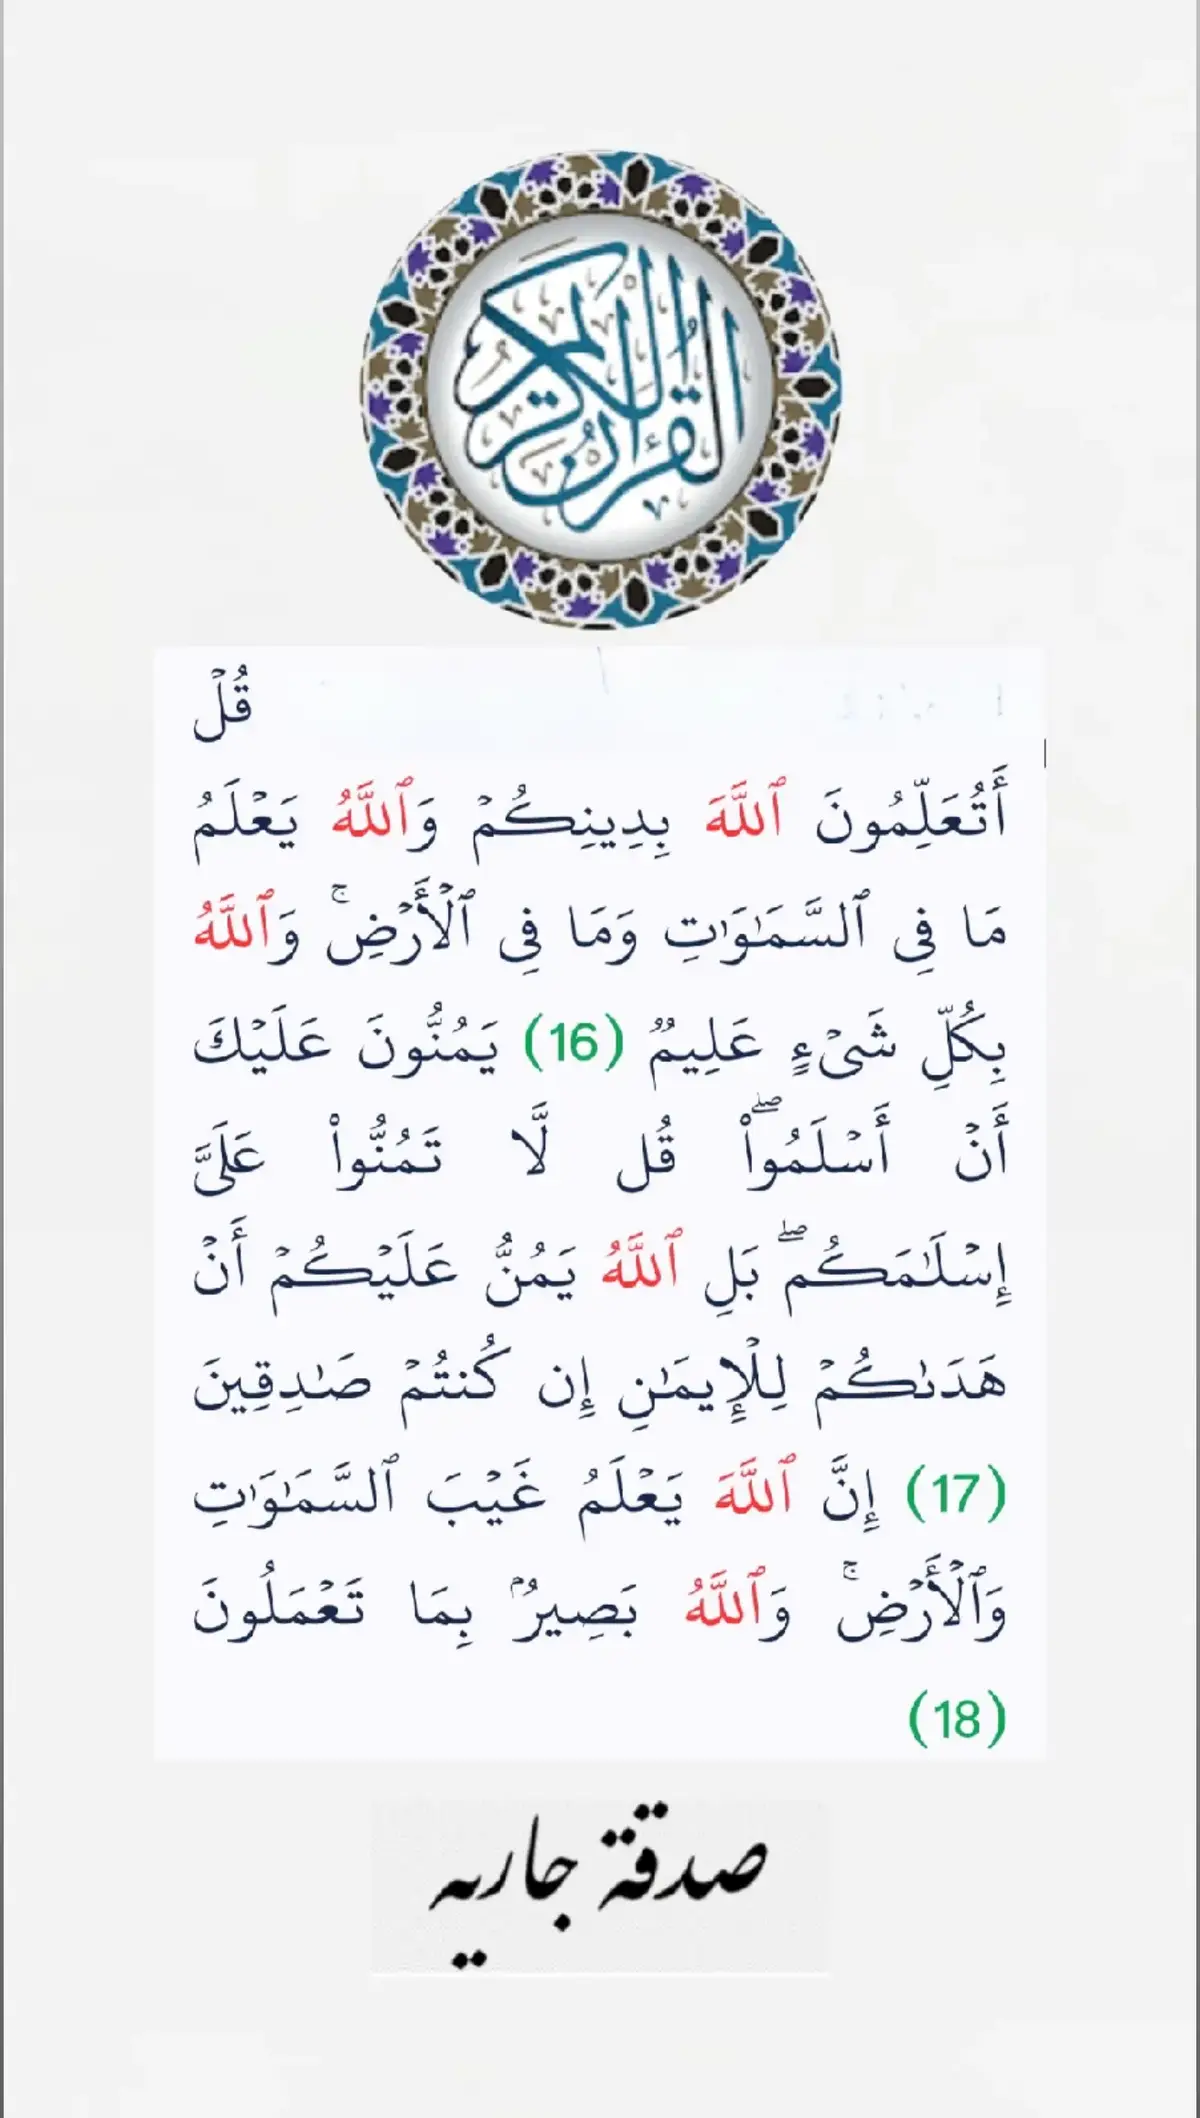 القرآن الكريم
قُلۡ
أَتُعَلِّمُونَ ٱللَّهَ بِدِينِكُمۡ وَٱللَّهُ يَعۡلَمُ
مَا فِي ٱلسَّمَٰوَٰتِ وَمَا فِي ٱلۡأَرۡضِۚ وَٱللَّهُ
بِكُلِّ شَيۡءٍ عَلِيمٞ (16) يَمُنُّونَ عَلَيۡكَ
أَنۡ أَسۡلَمُواْۖ قُل لَّا تَمُنُّواْ عَلَيَّ
إِسۡلَٰمَكُمۖ بَلِ ٱللَّهُ يَمُنُّ عَلَيۡكُمۡ أَنۡ
هَدَىٰكُمۡ لِلۡإِيمَٰنِ إِن كُنتُمۡ صَٰدِقِينَ
(17) إِنَّ ٱللَّهَ يَعۡلَمُ غَيۡبَ ٱلسَّمَٰوَٰتِ
وَٱلۡأَرۡضِۚ وَٱللَّهُ بَصِيرُۢ بِمَا تَعۡمَلُونَ
(18)
صدقة جاريه